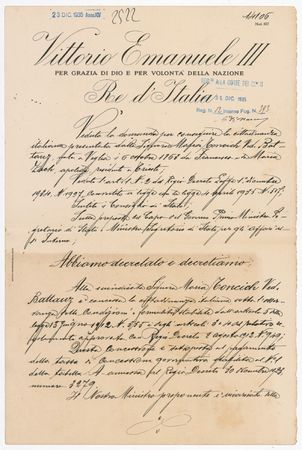 23 DIC. 1935 Anno XIV
2522
14106
Mod. 157
Vittorio Emanuele III
PER GRAZIA DI DIO E PER VOLONTÀ DELLA NAZIONE
Re d'Italia
ALLA CORTE DEI CONTI
DIC. 1935
Reg. N. 12 Interno Fog. N. 183
Veduta la domanda per conseguire la cittadinanza
italiana presentata dalla Signora Maria Concich Ved. Bal
nata a Veglia il 6 ottobre 1868 da Francesco e da Maria
apolide, residente a Trieste;
Visto l'art. 1 N. 2 del Regio Decreto Legge 1 dicembre
1934 N. 1997, convertito in legge con la legge 4 aprile 1935 N. 517;
Sentito il Consiglio di Stato;
Sulla proposta del Capo del Governo Primo Ministro Se
gretario di Stato e Ministro Segretario di Stato per gli affari del
l'Interno;
Abbiamo decretato e decretiamo:
Alla suindicata Signora Maria Concich Ved.
è concessa la cittadinanza italiana sotto l'osser
vanza delle condizioni e formalità stabilite dall'articolo 5 della
legge 13 giugno 1912 N. 555 e dagli articoli 3 e del relativo re
golamento approvato con Regio Decreto 2 agosto 1912 N. 949;
Questa concessione è sottoposta al pagamento
della tassa di concessione governativa stabilita al N. 1
della tabella A annessa al Regio Decreto 30 Novembre 1923
numero 3279.
Il Nostro Ministro proponente è incaricato della